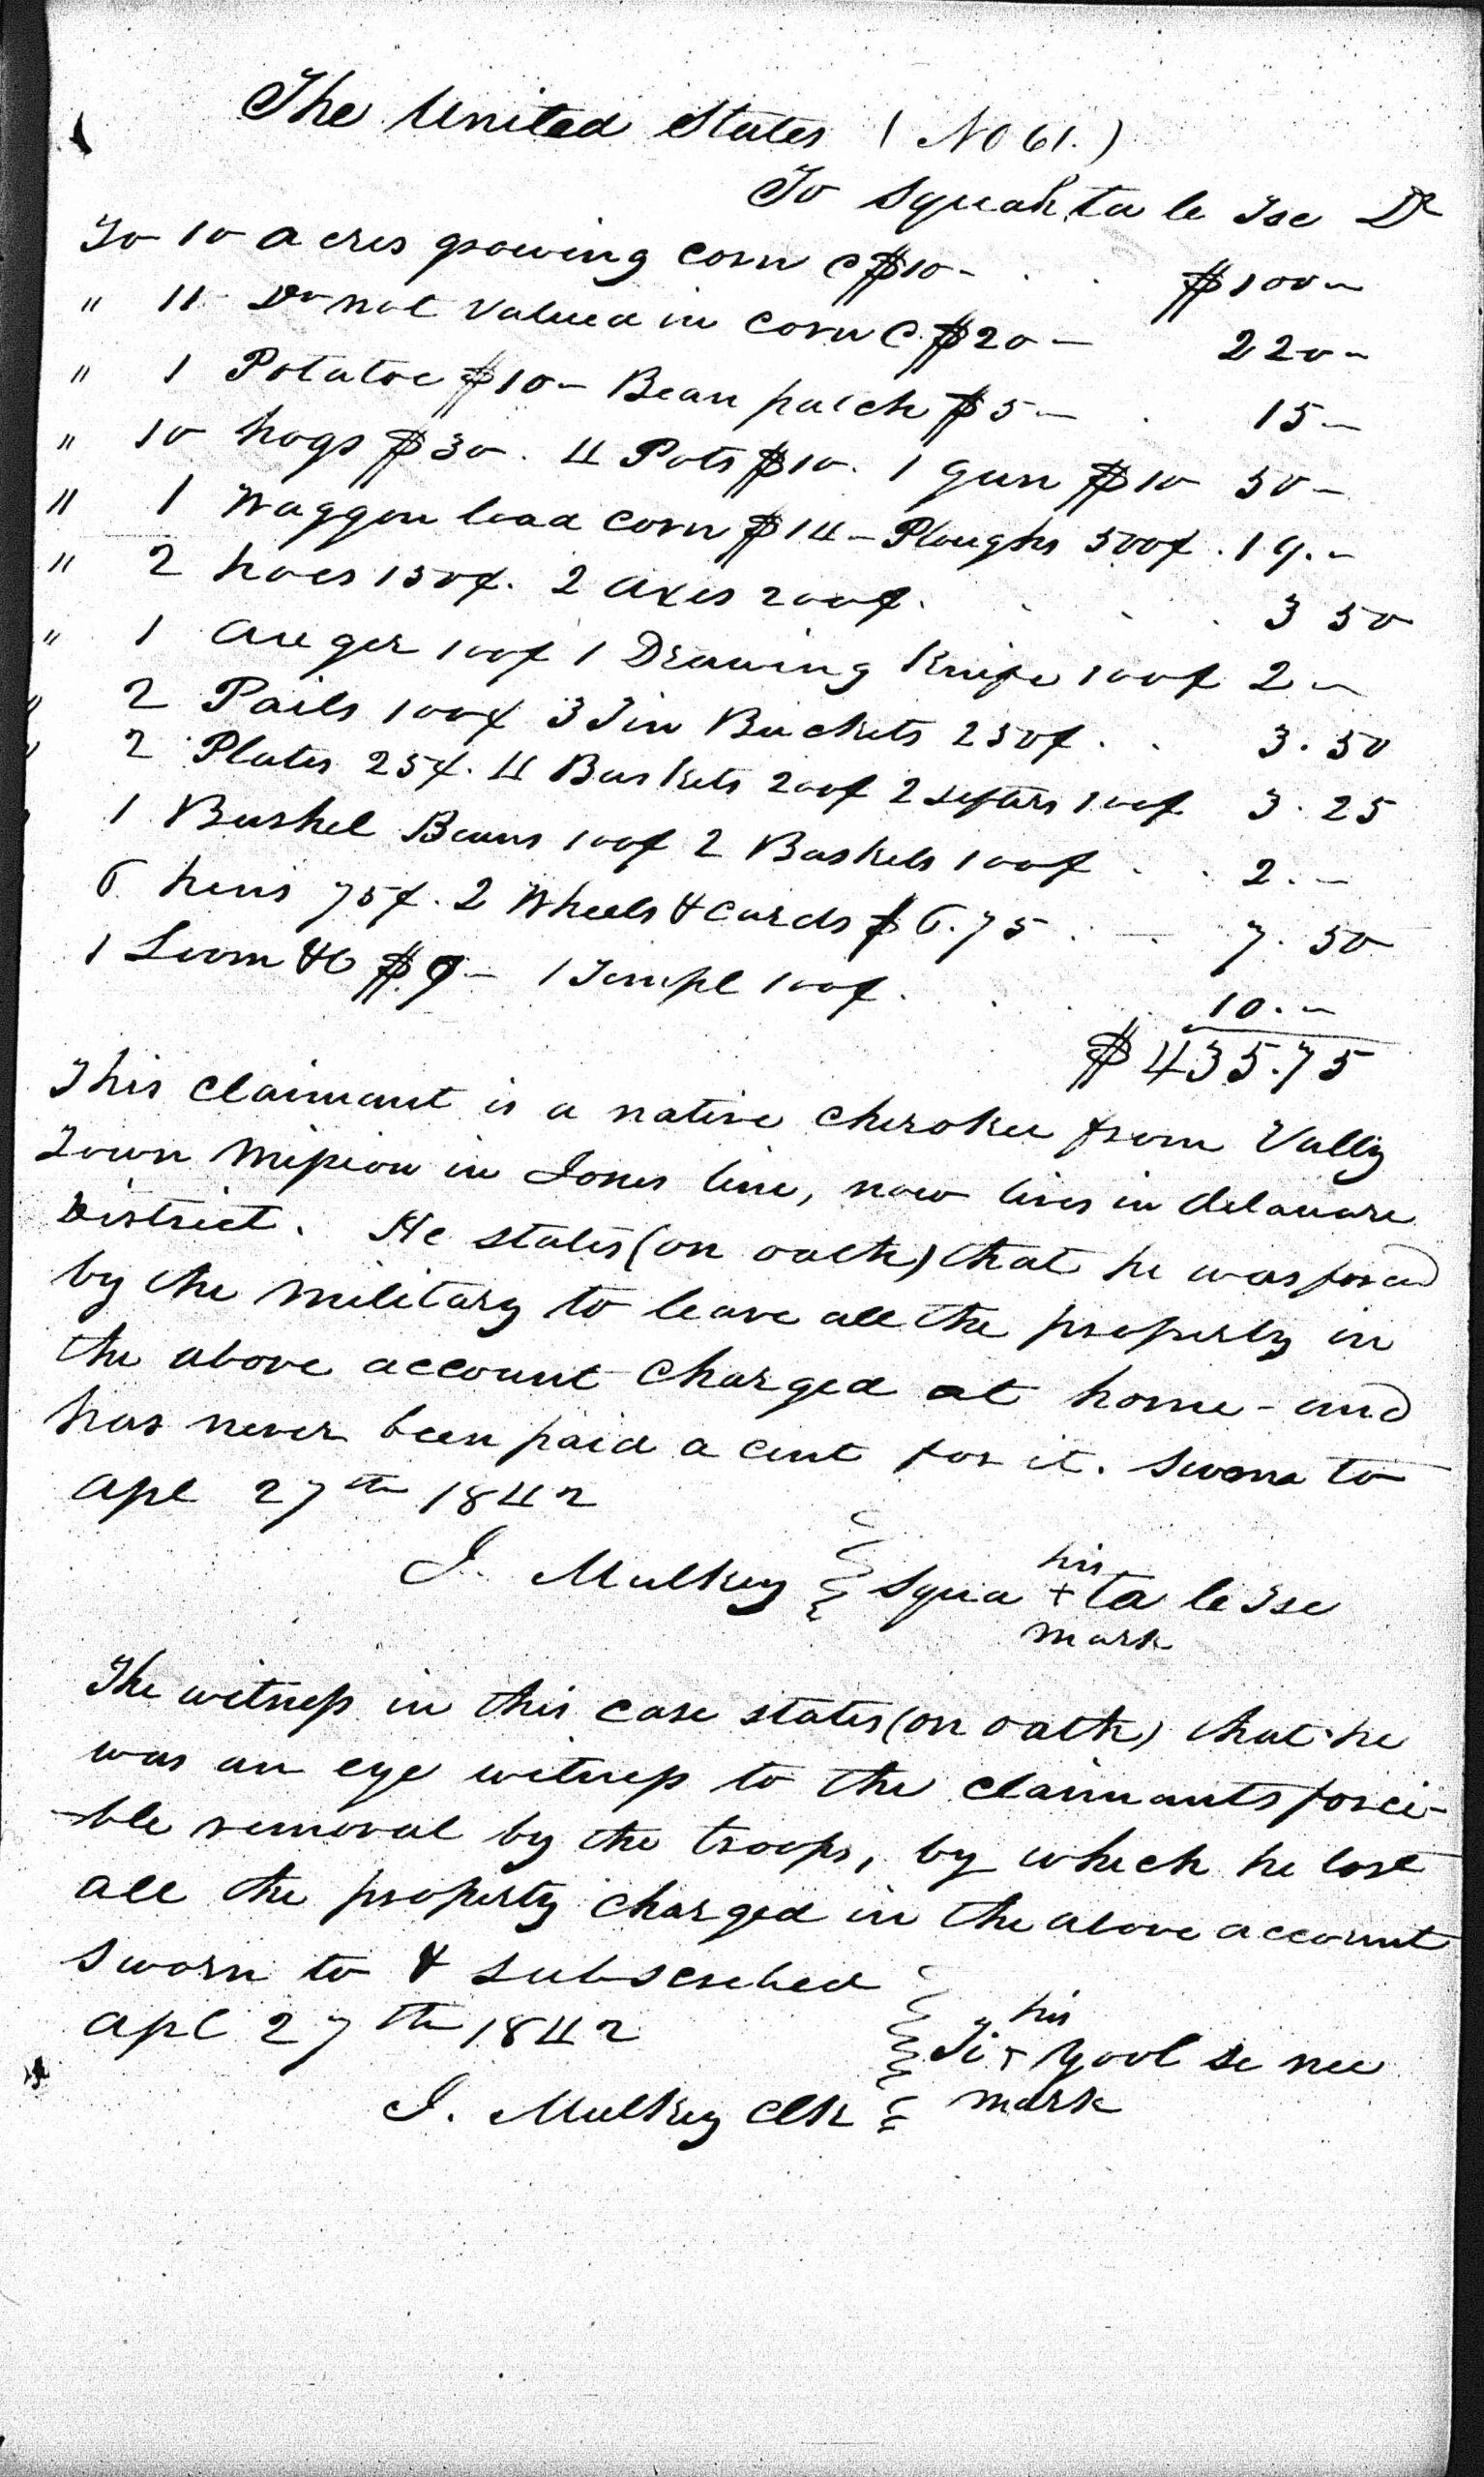 The United States (No 61.)
To Squah ta le Tse Dr
To 10 acres growing corn @ $10 - $100 -
" 11 Do not valued in corn @ $20 - 220 -
" 1 Potatoe $10 - Bean patch $5 - 15 -
" 10 hogs $30. 4 Pots $10. 1 gun $10 50 -
" 1 Waggon load corn $14 - Ploughs 500¢. 19. -
" 2 hoes 150¢. 2 axes 200¢. 3 50
" 1 auger 100¢ 1 Drawing Knife 100¢ 2 -
" 2 Pails 100¢ 3 Tin Buckets 250¢. 3. 50
" 2 Plates 25¢. 4 Baskets 200¢ 2 sifters 100¢ 3. 25
1 Bushel Beans 100¢ 2 Baskets 100¢ 2. -
6 hens 75¢. 2 Wheels & cards $6.75 7. 50
1 Loom &c $9 - 1 Templ 100¢. 10. -
$435.75
This claimant is a native cherokee from Vally
Town Mission in Jones line, now lives in delaware
District. He states (on oath) that he was forced
by the military to leave all the property in
the above account charged at home - and
has never been paid a cent for it. Sworn to
Apl 27th 1842
his
J. Mulkey Squa + ta le Tse
mark
The witness in this case states (on oath) that he
was an eye witness to the claimants forci-
-ble removal by the troops, by which he lost
all the property charged in the above account
Sworn to & subscribed
Apl 27th 1842
his
Ti + yool se nee
J. Mulkey Clk mark